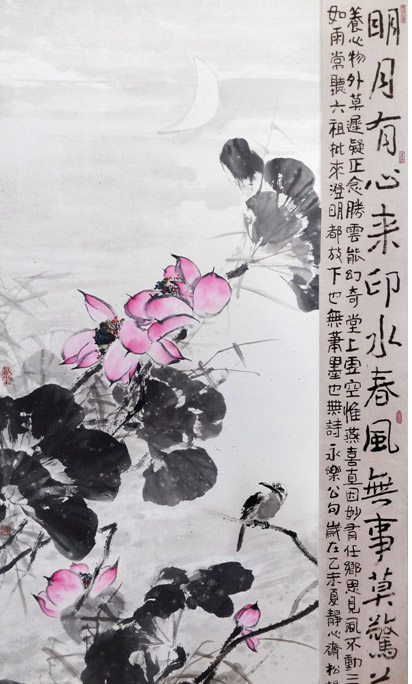 明月有心来印水春風無事莫驚
養心物外莫遲疑正念勝雲能幻奇堂上雲空惟燕喜真因妙有任鄉思見風不動三
如雨常聽六祖批來澄明都放下也無墨也無詩永樂公句歲在乙未夏靜心齋松